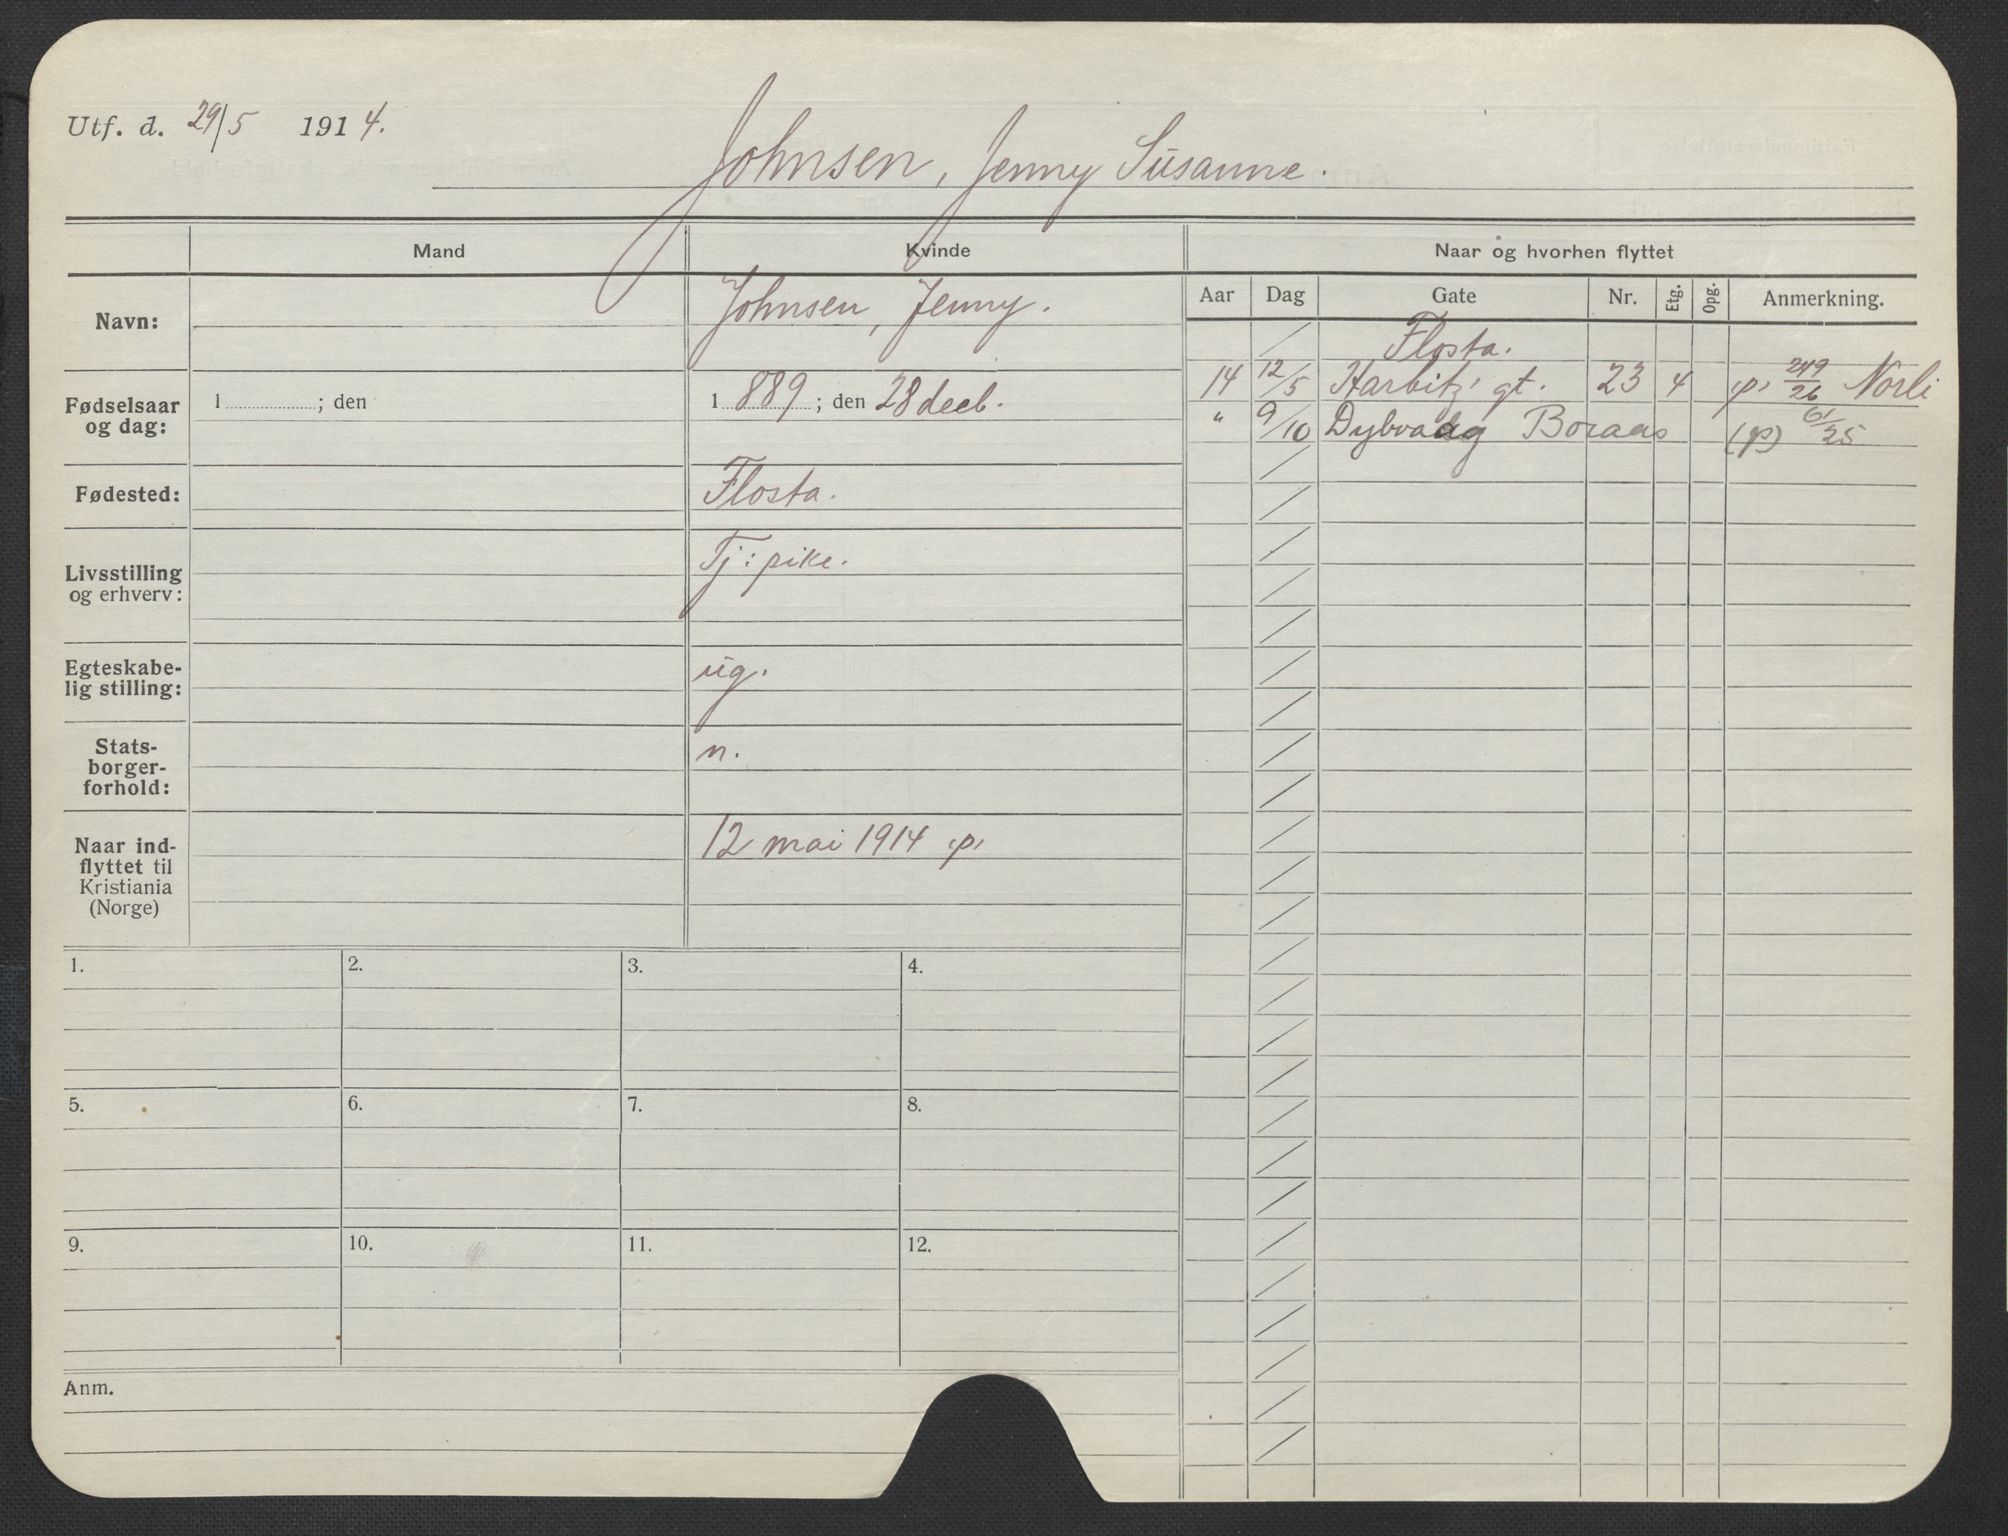 Utf. d. 29/5 1914.
Johnsen, Jenny Susanne.
Mand
Kvinde
Naar og hvorhen flyttet
Navn:
Johnsen, Jenny.
Fødselsaar og dag:
1 ; den
1 889 ; den 28 decb.
Fødested:
Flosta.
Livsstilling og erhverv:
Tj: pike.
Egteskabe-
lig stilling:
ug.
Stats-
borger-
forhold:
n.
Naar ind-
flyttet til
Kristiania
(Norge)
12 mai 1914 p,
Aar Dag Gate Nr. Etg. Opg. Anmerkning.
Flosta.
14 12/5 Harbitz' gt. 23 4 p, 249/26 Norli
" 9/10 Dybvaag Boraas (p) 61/25
1. 2. 3. 4.
5. 6. 7. 8.
9. 10. 11. 12.
Anm.